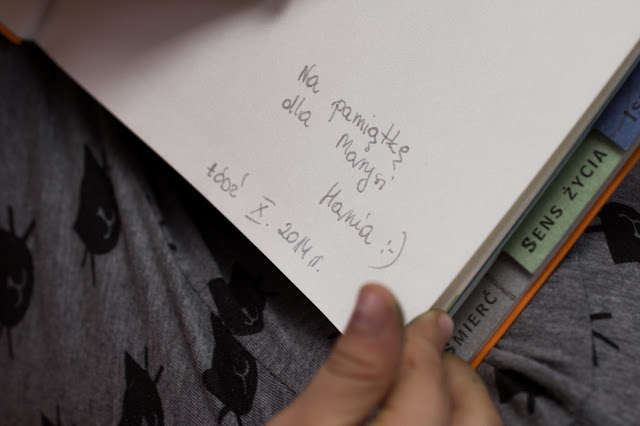 Na pamiątkę
dla Marysi
Hania :-)
Łódź X. 2014 r.
SENS ŻYCIA
ŚMIERĆ